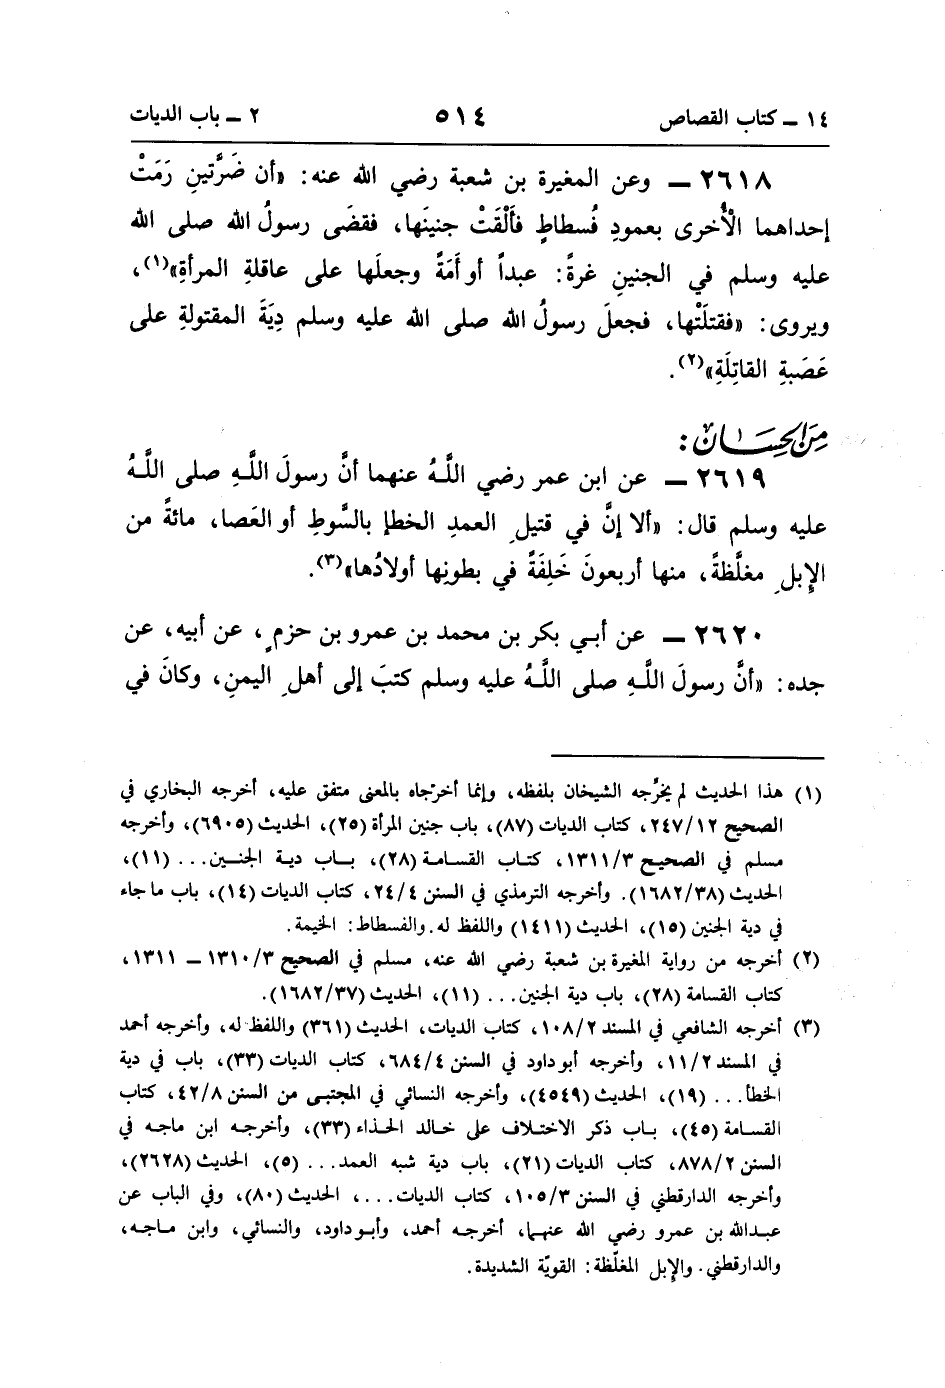 ١٤ ــ كتاب القصاص ٥١٤ ٢ ــ باب الديات
٢٦١٨ ــ وعن المغيرة بن شعبة رضي الله عنه: «أن ضَرَّتينِ رَمَتْ
إحداهما الْأُخرى بعمودِ فُسطاطٍ فَأَلْقَتْ جنينَها، فقضَى رسولُ الله صلى الله
عليه وسلم في الجنينِ غرةً: عبداً أو أَمَةً وجعلَها على عاقلةِ المرأةِ»(١)،
ويروى: «فقتلَتْها، فجعلَ رسولُ الله صلى الله عليه وسلم دِيَةَ المقتولةِ على
عَصَبةِ القاتِلَةِ»(٢).
مِنَ الحِسَان:
٢٦١٩ ــ عن ابن عمر رضي اللَّهُ عنهما أنَّ رسولَ اللَّهِ صلى اللَّهُ
عليه وسلم قال: «ألا إنَّ في قتيلِ العمدِ الخطإِ بالسَّوطِ أو العَصا، مائةً من
الإِبلِ مغلَّظةً، منها أربعونَ خَلِفَةً في بطونِها أولادُها»(٣).
٢٦٢٠ ــ عن أبي بكر بن محمد بن عمرو بن حزمٍ، عن أبيه، عن
جده: «أنَّ رسولَ اللَّهِ صلى اللَّهُ عليه وسلم كتبَ إلى أهلِ اليمنِ، وكانَ في
(١) هذا الحديث لم يخرِّجه الشيخان بلفظه، وإنما أخرجاه بالمعنى متفق عليه، أخرجه البخاري في
الصحيح ٢٤٧/١٢، كتاب الديات (٨٧)، باب جنين المرأة (٢٥)، الحديث (٦٩٠٥)، وأخرجه
مسلم في الصحيح ١٣١١/٣، كتاب القسامة (٢٨)، باب دية الجنين... (١١)،
الحديث (١٦٨٢/٣٨). وأخرجه الترمذي في السنن ٢٤/٤، كتاب الديات (١٤)، باب ما جاء
في دية الجنين (١٥)، الحديث (١٤١١) واللفظ له. والفسطاط: الخيمة.
(٢) أخرجه من رواية المغيرة بن شعبة رضي الله عنه، مسلم في الصحيح ١٣١٠/٣ – ١٣١١،
كتاب القسامة (٢٨)، باب دية الجنين... (١١)، الحديث (١٦٨٢/٣٧).
(٣) أخرجه الشافعي في المسند ١٠٨/٢، كتاب الديات، الحديث (٣٦١) واللفظ له، وأخرجه أحمد
في المسند ١١/٢، وأخرجه أبو داود في السنن ٦٨٤/٤، كتاب الديات (٣٣)، باب في دية
الخطأ... (١٩)، الحديث (٤٥٤٩)، وأخرجه النسائي في المجتبى من السنن ٤٢/٨، كتاب
القسامة (٤٥)، باب ذكر الاختلاف على خالد الحذاء (٣٣)، وأخرجه ابن ماجه في
السنن ٨٧٨/٢، كتاب الديات (٢١)، باب دية شبه العمد... (٥)، الحديث (٢٦٢٨)،
وأخرجه الدارقطني في السنن ١٠٥/٣، كتاب الديات...، الحديث (٨٠)، وفي الباب عن
عبدالله بن عمرو رضي الله عنهما، أخرجه أحمد، وأبو داود، والنسائي، وابن ماجه،
والدارقطني. والإِبل المغلّظة: القويّة الشديدة.